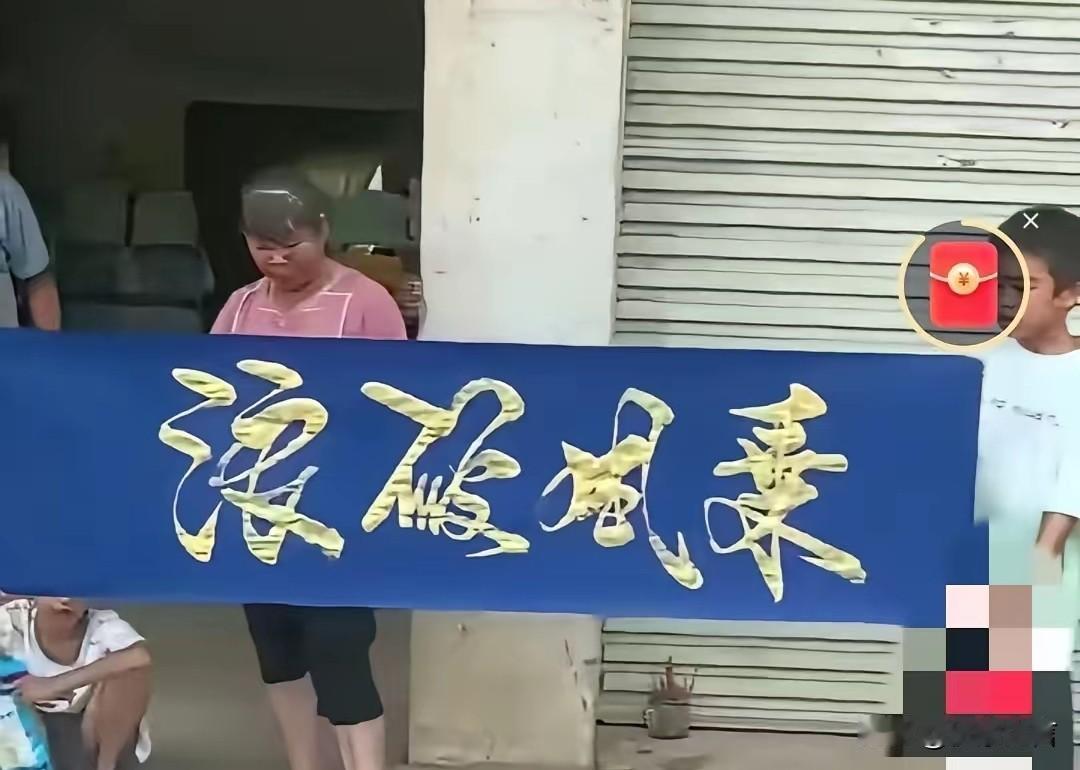 乘风破浪
¥